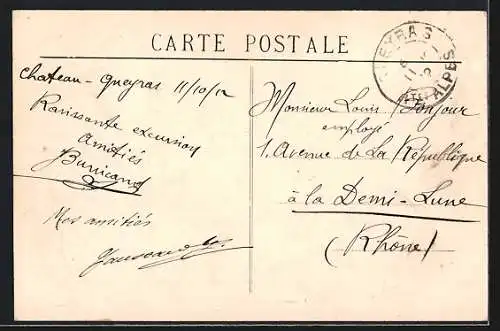 CARTE POSTALE
Chateau-Queyras 11/10/12
Ravissante excursion
Amitiés
Mes amitiés
Monsieur Louis Bonjour
employé
1. Avenue de La République
à la Demi-Lune
(Rhône)
QUEYRAS
ALPES